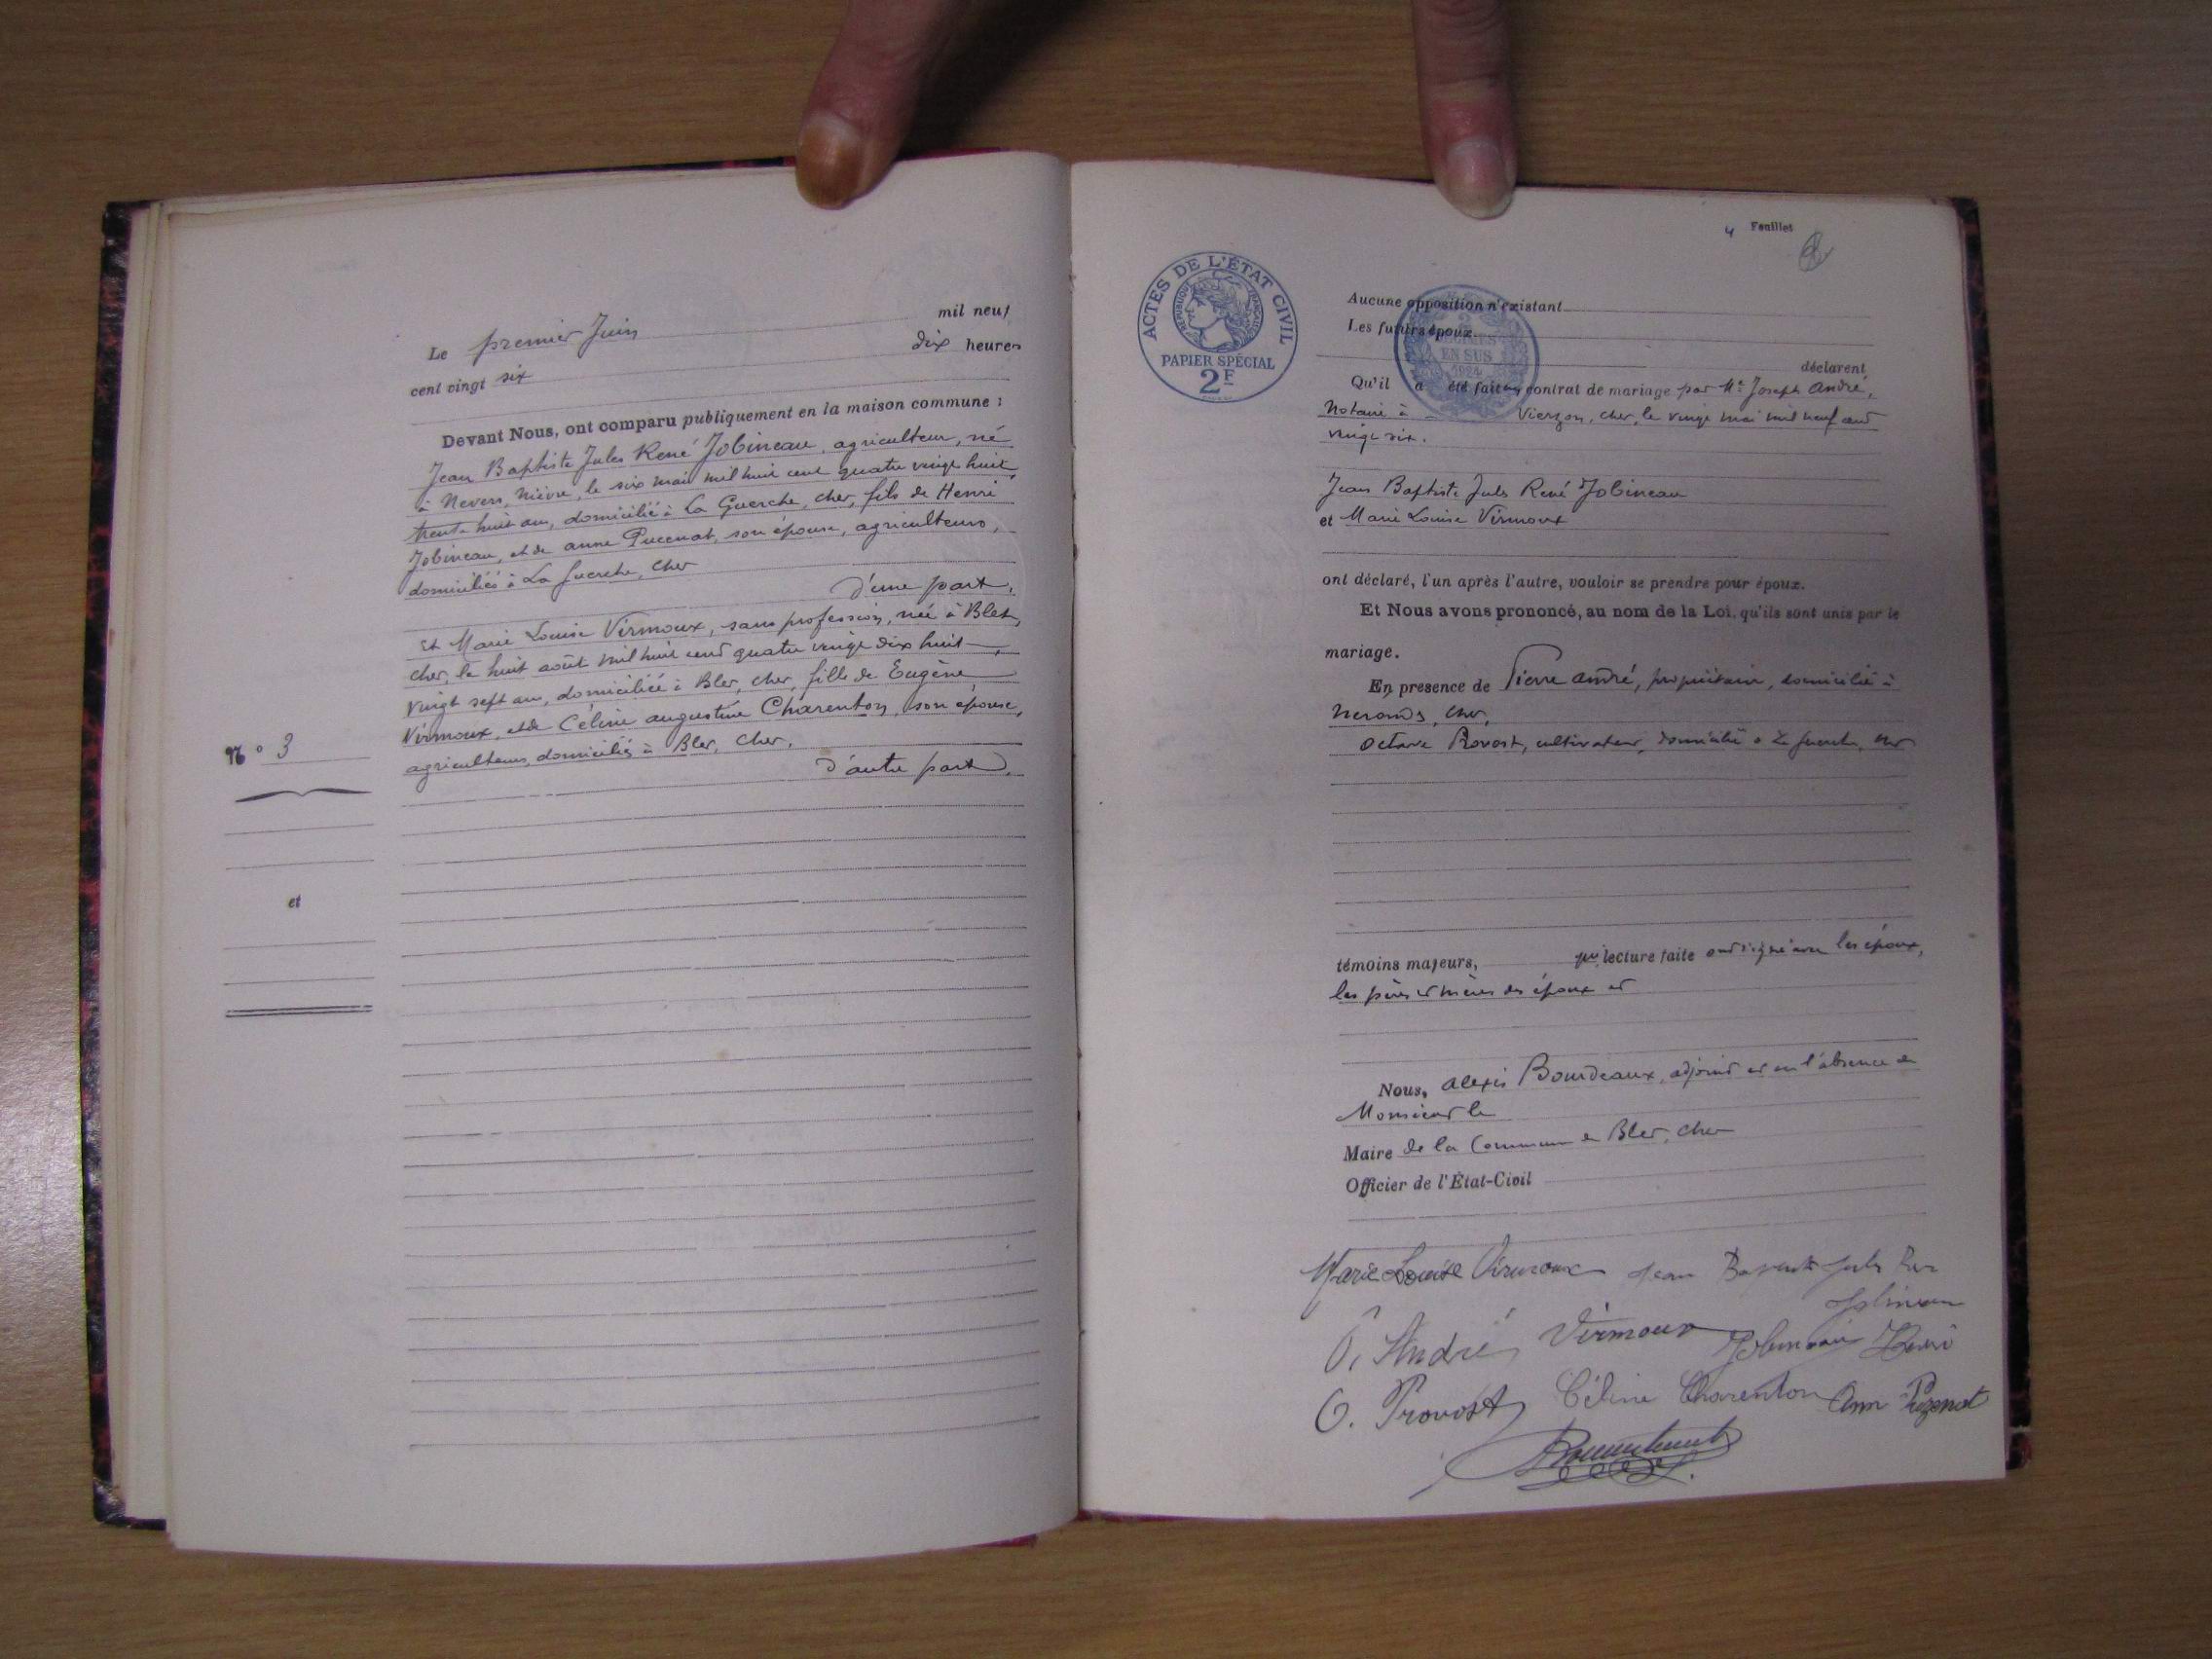 Le premier Juin mil neuf
cent vingt six dix heures
Devant Nous, ont comparu publiquement en la maison commune :
Jean Baptiste Jules René Jobineau, agriculteur, né
à Nevers, Nièvre, le six mai mil huit cent quatre vingt huit,
trente huit ans, domicilié à La Guerche, Cher, fils de Henri
Jobineau, et de Anne Puzenat, son épouse, agriculteurs,
domiciliés à La Guerche, Cher
d'une part.
Et Marie Louise Virmoux, sans profession, née à Blet,
Cher, le huit août mil huit cent quatre vingt dix huit,
vingt sept ans, domiciliée à Blet, Cher, fille de Eugène
Virmoux, et de Céline Augustine Charenton, son épouse,
agriculteurs, domiciliés à Blet, Cher.
d'autre part.
N° 3
et
4 Feuillet
ACTES DE L'ÉTAT CIVIL
RÉPUBLIQUE FRANÇAISE
PAPIER SPÉCIAL
2F
EN SUS
1924
Aucune opposition n'existant
Les futurs époux
déclarent
Qu'il a été fait un contrat de mariage par Me Joseph André,
Notaire à Vierzon, Cher, le vingt mai mil neuf cent
vingt six.
Jean Baptiste Jules René Jobineau
et Marie Louise Virmoux
ont déclaré, l'un après l'autre, vouloir se prendre pour époux.
Et Nous avons prononcé, au nom de la Loi, qu'ils sont unis par le
mariage.
En presence de Pierre André, propriétaire, domicilié à
Nerondes, Cher,
Octave Provost, cultivateur, domicilié à La Guerche, Cher
témoins majeurs, qui lecture faite ont signé avec les époux,
les pères et mères des époux et
Nous, Alexis Bourdeaux, adjoint et en l'absence de
Monsieur le
Maire de la Commune de Blet, Cher
Officier de l'État-Civil
Marie Louise Virmoux Jean Baptiste Jules René
Jobineau
P. André Virmoux Jobineau Henri
O. Provost Céline Charenton Ann Puzenat